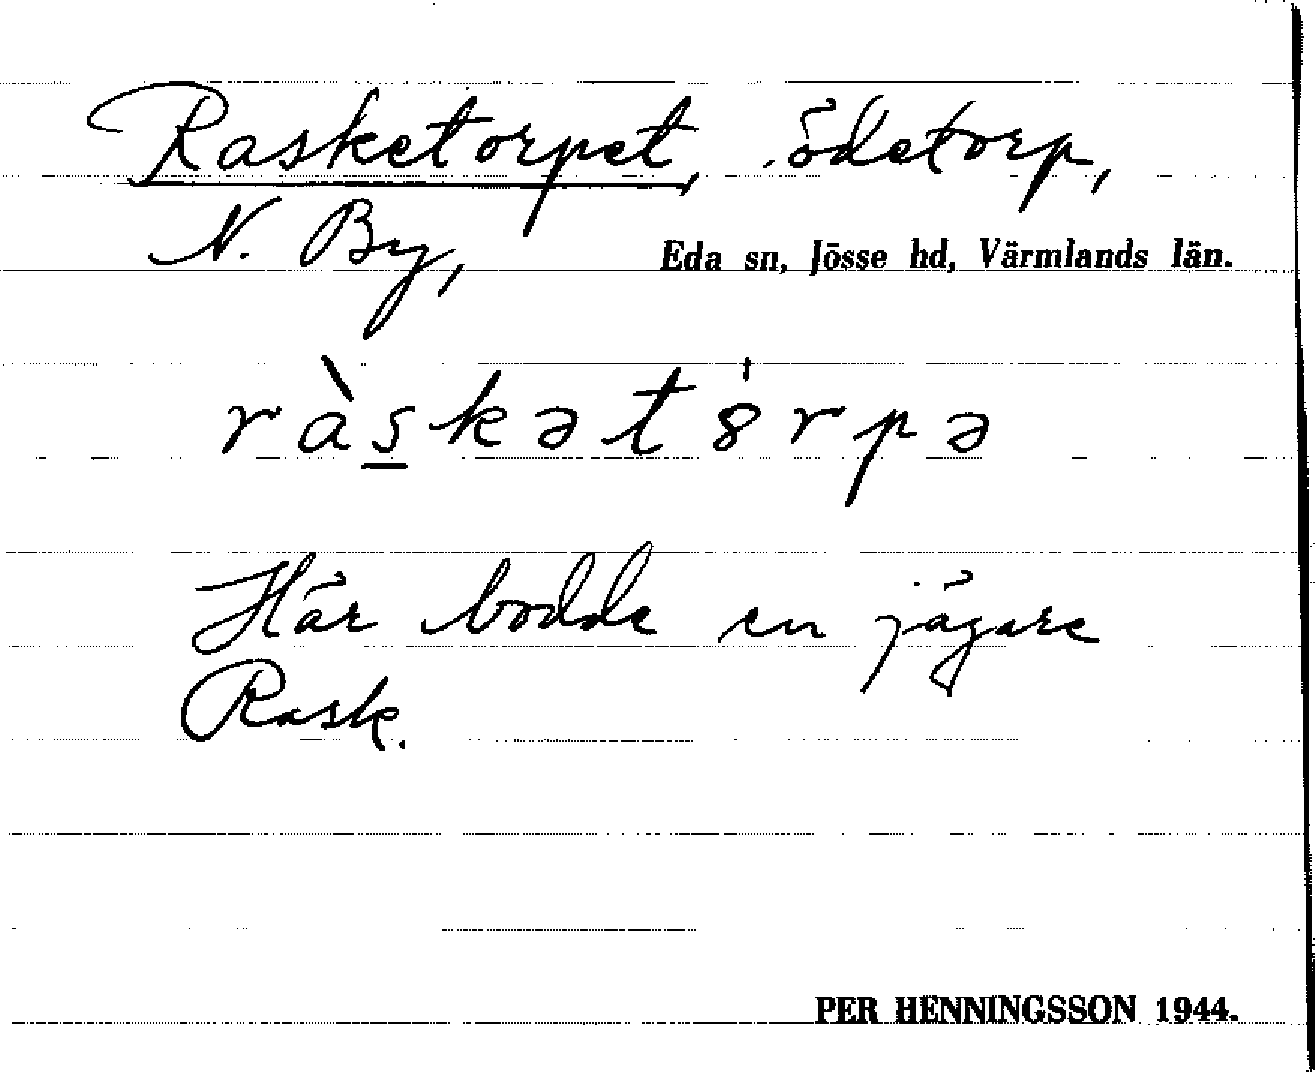 Rasketorpet, ödetorp,
N. By,
Eda sn, Jösse hd, Värmlands län.
ràs̲kətȣ́rpə
Här bodde en jägare
Rask.
PER HENNINGSSON 1944.